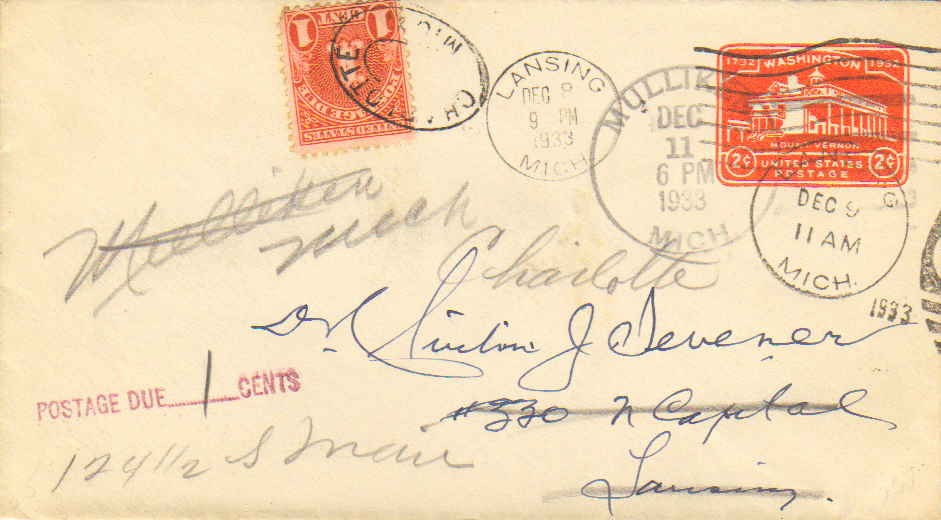 1 CENT 1
POSTAGE DUE
UNITED STATES
CHARLOTTE MICH
LANSING
DEC 8
9 PM
1933
MICH
MULLIK
DEC
11
6 PM
1933
MICH
1732 WASHINGTON 1932
MOUNT VERNON
2¢ UNITED STATES 2¢
POSTAGE
G
DEC 9
11 AM
MICH.
1933
Mulliken
Mich
Charlotte
Dr Clinton J Sevener
POSTAGE DUE 1 CENTS
#330 N Capital
124 1/2 S Main
Lansing.